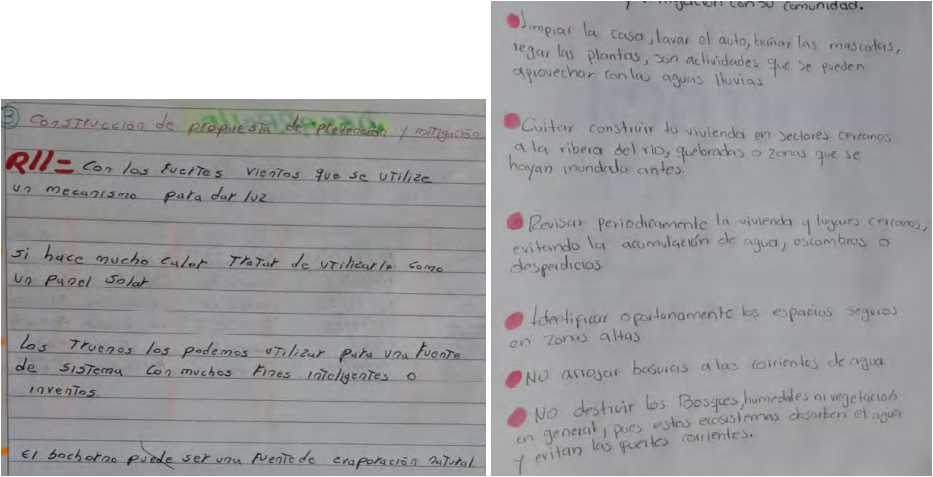 3 Construcción de propuesta de prevención y mitigación
R// = Con los fuertes vientos que se utilize
un mecanismo para dar luz
si hace mucho calor Tratar de utilicarlo como
un panel solar
Los Truenos los podemos utilizar para una fuente
de sistema con muchos fines inteligentes o
inventos
El bochorno puede ser una fuente de evaporación natural
con su comunidad.
Limpiar la casa, lavar el auto, bañar las mascotas,
regar las plantas, son actividades que se pueden
aprovechar con las aguas lluvias
Evitar construir tu vivienda en sectores cercanos
a la ribera del rio, quebradas o zonas que se
hayan inundado antes.
Revisar periodicamente la vivienda y lugares cercanos,
evitando la acumulación de agua, escombros o
desperdicios
Identificar oportunamente los espacios seguros
en zonas altas
NO arrojar basuras a las corrientes de agua
NO destruir los Bosques, humedales ni vegetación
en general, pues estos ecosistemas absorben el agua
y evitan las fuertes corrientes.